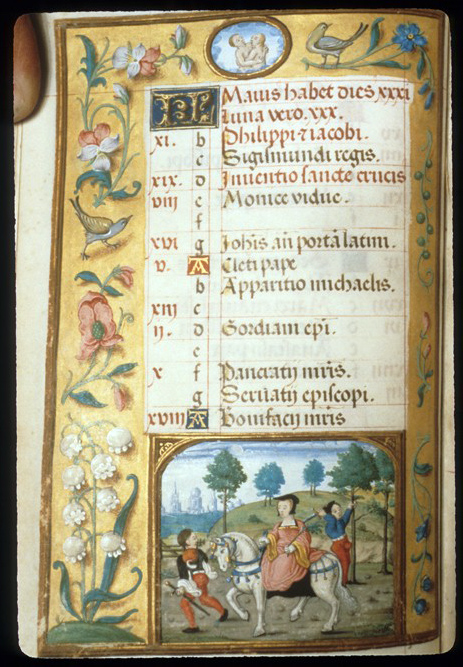 KL Maius habet dies xxxi
Luna vero .xxx.
xi. b Philippi ⁊ iacobi.
c Sigismundi regis.
xix. d Inuentio sancte crucis
viij e Monice vidue.
f
xvi g Joh̄is añ portã latini.
v. A Cleti pape
b Apparitio michaelis.
xiij c
ij. d Gordiani ep̄i.
e
x f Pancratij mr̄is.
g Seruatij episcopi.
xviij A Bonifacij mr̄is